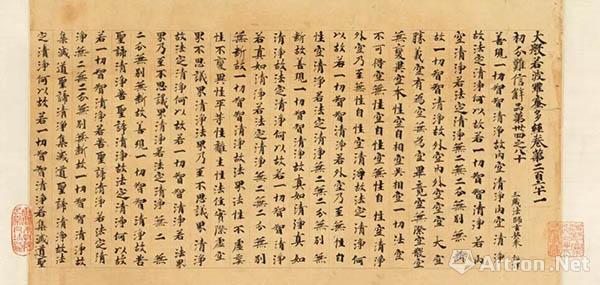 大般若波羅蜜多經卷第二百六十一
初分難信解品第卅四之八十 三藏法師玄奘奉
善現一切智智清淨故內空清淨內空清淨
故法定清淨何以故若一切智智清淨若內
空清淨若法定清淨無二無二分無別無斷
故一切智智清淨故外空內外空空空大空
勝義空有為空無為空畢竟空無際空散空
無變異空本性空自相空共相空一切法空
不可得空無性空自性空無性自性空清淨
外空乃至無性自性空清淨故法定清淨何
以故若一切智智清淨若外空乃至無性自
性空清淨若法定清淨無二無二分無別無
斷故善現一切智智清淨故真如清淨真如
清淨故法定清淨何以故若一切智智清淨
若真如清淨若法定清淨無二無二分無別
無斷故一切智智清淨故法界法性不虛妄
性不變異性平等性離生性法定法住實際虛空
界不思議界清淨法界乃至不思議界清淨
故法定清淨何以故若一切智智清淨若法
界乃至不思議界清淨若法定清淨無二無
二分無別無斷故善現一切智智清淨故苦
聖諦清淨苦聖諦清淨故法定清淨何以故
若一切智智清淨若苦聖諦清淨若法定清
淨無二無二分無別無斷故一切智智清淨故
集滅道聖諦清淨集滅道聖諦清淨故法
定清淨何以故若一切智智清淨若集滅道聖
Artron.Net